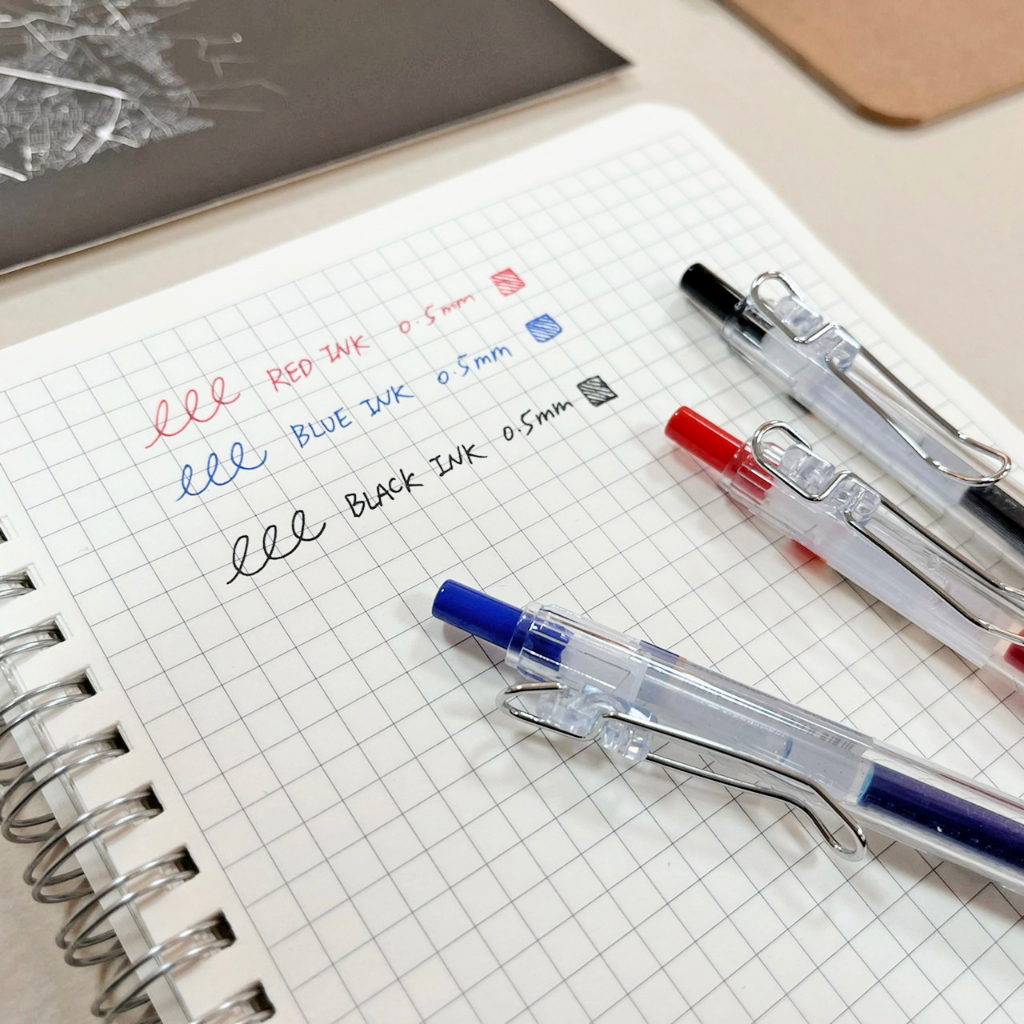 RED INK 0.5mm
BLUE INK 0.5mm
BLACK INK 0.5mm